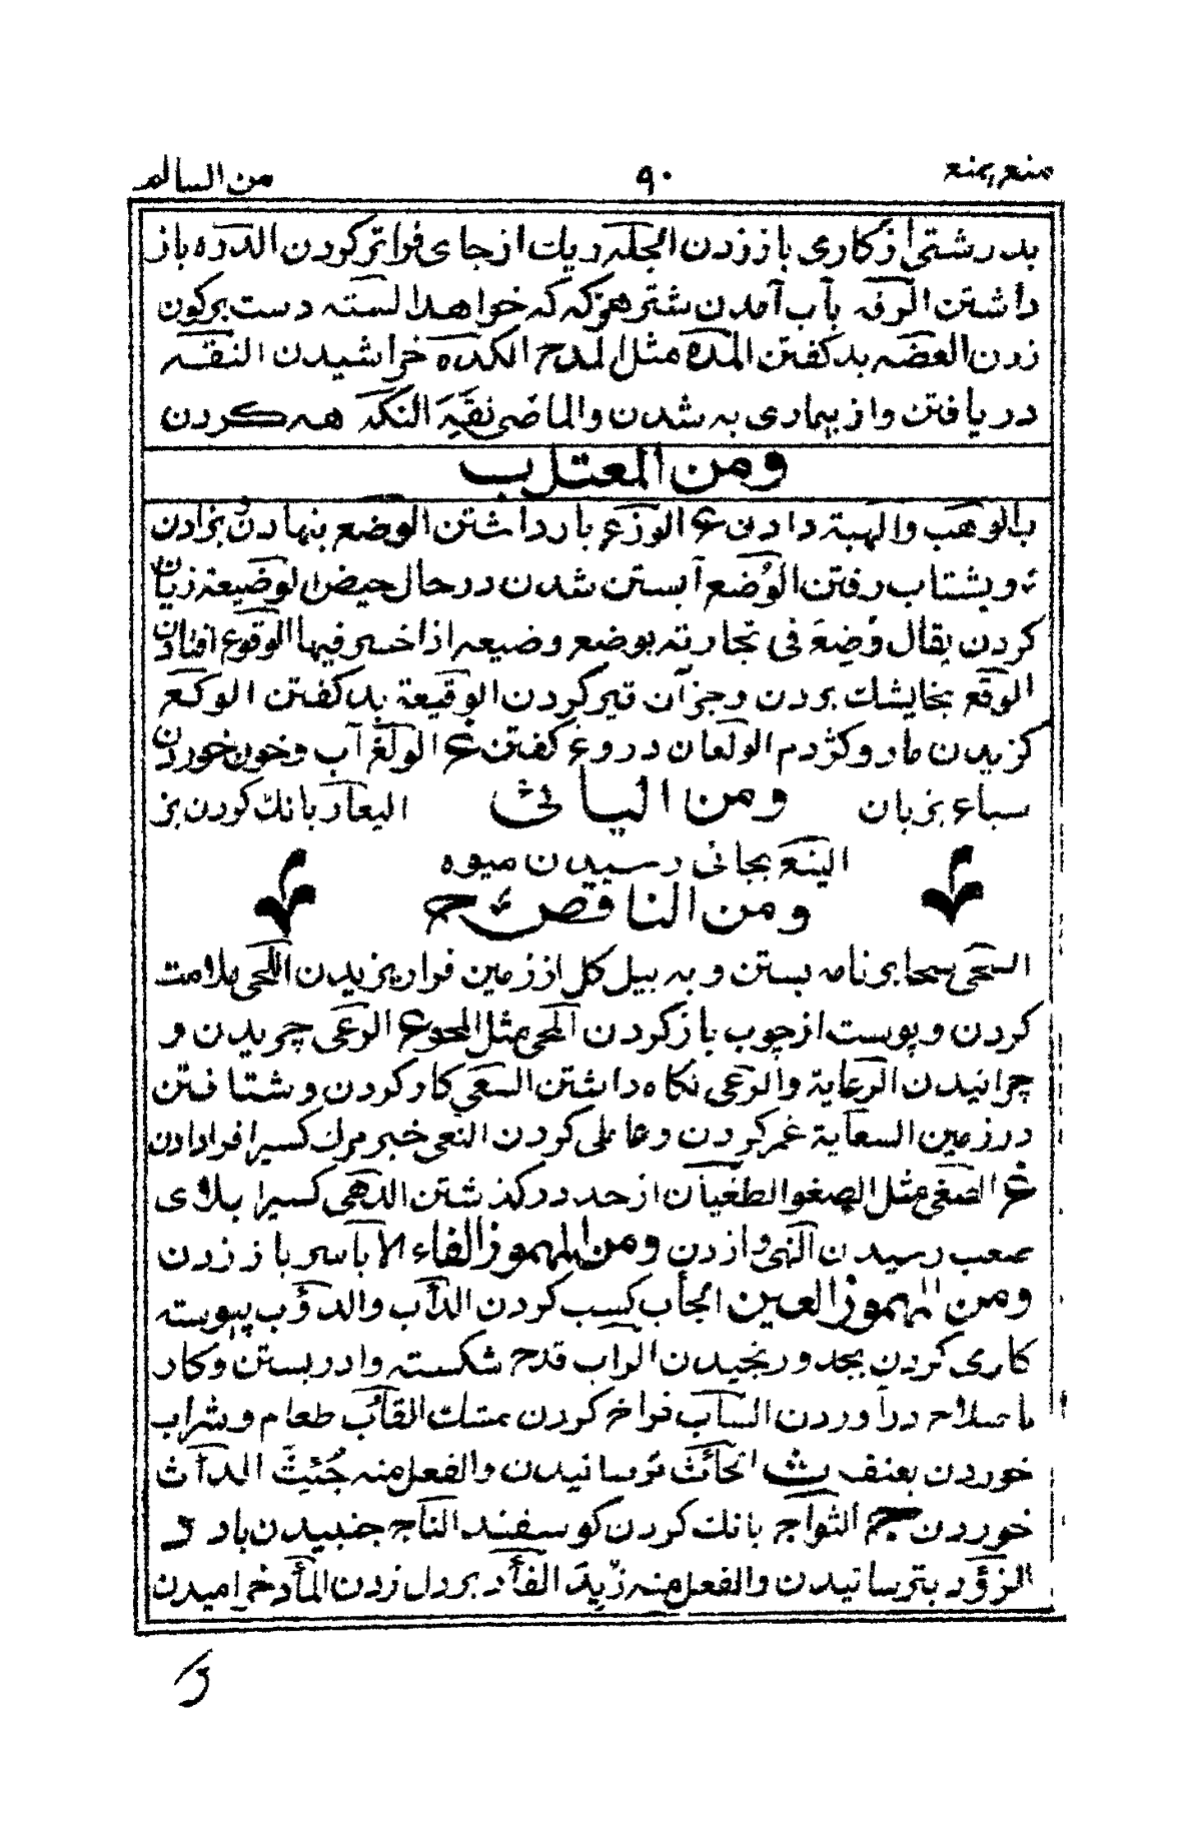 منع یمنع ٩٠ من السالم
بدرشتی از کاری باز زدن الجله ریك از جای فراتر کردن الدره باز
داشتن الرفه بآب آمدن شتر هرکه که خواهد السته دست بر کون
زدن العضه بد کفتن المده مثل المدح الکده خراشیدن النقه
دریافتن واز بیماری به شدن والماضی نَقِهَ النکه هه کردن
ومن المعتل ب
بالوهب والهبة دادن ع الوزع بازداشتن الوضع بنهادن بزادن
وبشتاب رفتن الوُضع آبستن شدن درحال حیض الوضیعة زیان
کردن یقال وُضِعَ فی تجارته یوضع وضیعه اذا خسر فیها الوقوع افتادن
الوقع بخایشك بردن وجزآن تیز کردن الوقیعة بد کفتن الوکع
کزیدن مار وکژدم الولعان دروغ کفتن غ الولغ آب وخون خوردن
سباع بزبان ومن الیائی الیعار بانك کردن بز
الینع بجائی رسیدن میوه
ومن الناقص ح
السحی سحا بر نامه بستن وبه بیل کل از زمین فرا ریزیدن اللحی ملامت
کردن وپوست ازچوب باز کردن المحی مثل المحو ع الرعی چریدن و
چرانیدن الرعایة والرعی نکاه داشتن السعی کار کردن وشتافتن
در زمین السعایة غمز کردن وعاملی کردن النعی خبر مرك کسی را فرا دادن
غ الصغی مثل الصغو الطغیان ازحد در کذشتن الدهی کسی را بلای
صعب رسیدن النهی وازدن ومن المهموز الفاء الاباسر باز زدن
ومن المهموز العین الجأب کسب کردن الدأب والدؤب پیوسته
کاری کردن بجد ورنجیدن الراب قدح شکسته وادر بستن وکار
باصلاح درآوردن الساب فراخ کردن مشك القأب طعام وشراب
خوردن بعنف ث الجأث ترسانیدن والفعل منه جُئِثَ الدأث
خوردن ج الثواج بانك کردن کوسفند النأج جنبیدن باد د
الزؤد بترسانیدن والفعل منه زُئِدَ الفأد بر دل زدن المأد خرامیدن